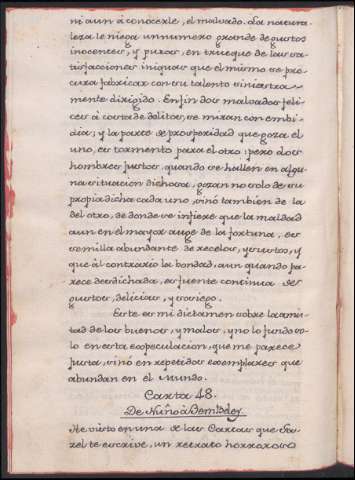 ni aun á conocerle, el malvado. La natura-
leza le niega un numero grande de gustos
inocentes, y puros, en trueque de las sa-
tisfacciones iniquas que el mismo se pro-
cura fabricar con su talento siniestra-
mente dirigido. En fin dos malvados feli-
ces á costa de delitos, se miran con embi-
dia; y la parte de prosperidad que goza el
uno, es tormento para el otro: pero dos
hombres justos, quando se hallen en algu-
na situacion dichosa, gozan no solo de su
propia dicha cada uno, sinó tambien de la
del otro, de donde se infiere que la maldad
aun en el mayor auge de la fortuna, es
semilla abundante de recelos, y sustos, y
que al contrario la bondad, aun quando pa-
rece desdichada, es fuente continua de
gustos, delicias, y sosiego.
Este es mi dictamen sobre la amis-
tad de los buenos, y malos, y no lo fundo so-
lo en esta especulacion, que me parece
justa, sinó en repetidos exemplares que
abundan en el Mundo.
Carta 48.
De Nuño á Ben-Beley
He visto en una de las Cartas que Ga-
zel te escrive, un retrato horroroso